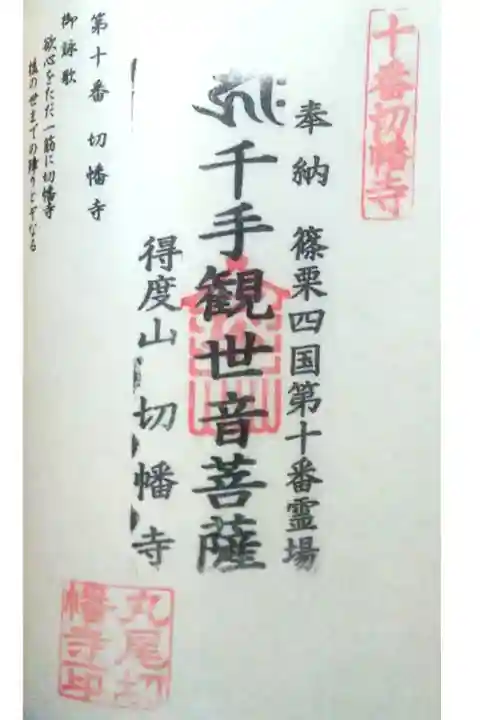 十番切幡寺
奉納 篠栗四国第十番霊場
千手観世音菩薩
得度山 切幡寺
第十番 切幡寺
御詠歌
欲心をただ一筋に切幡寺
後の世までの障りとぞなる
丸尾切
幡寺印